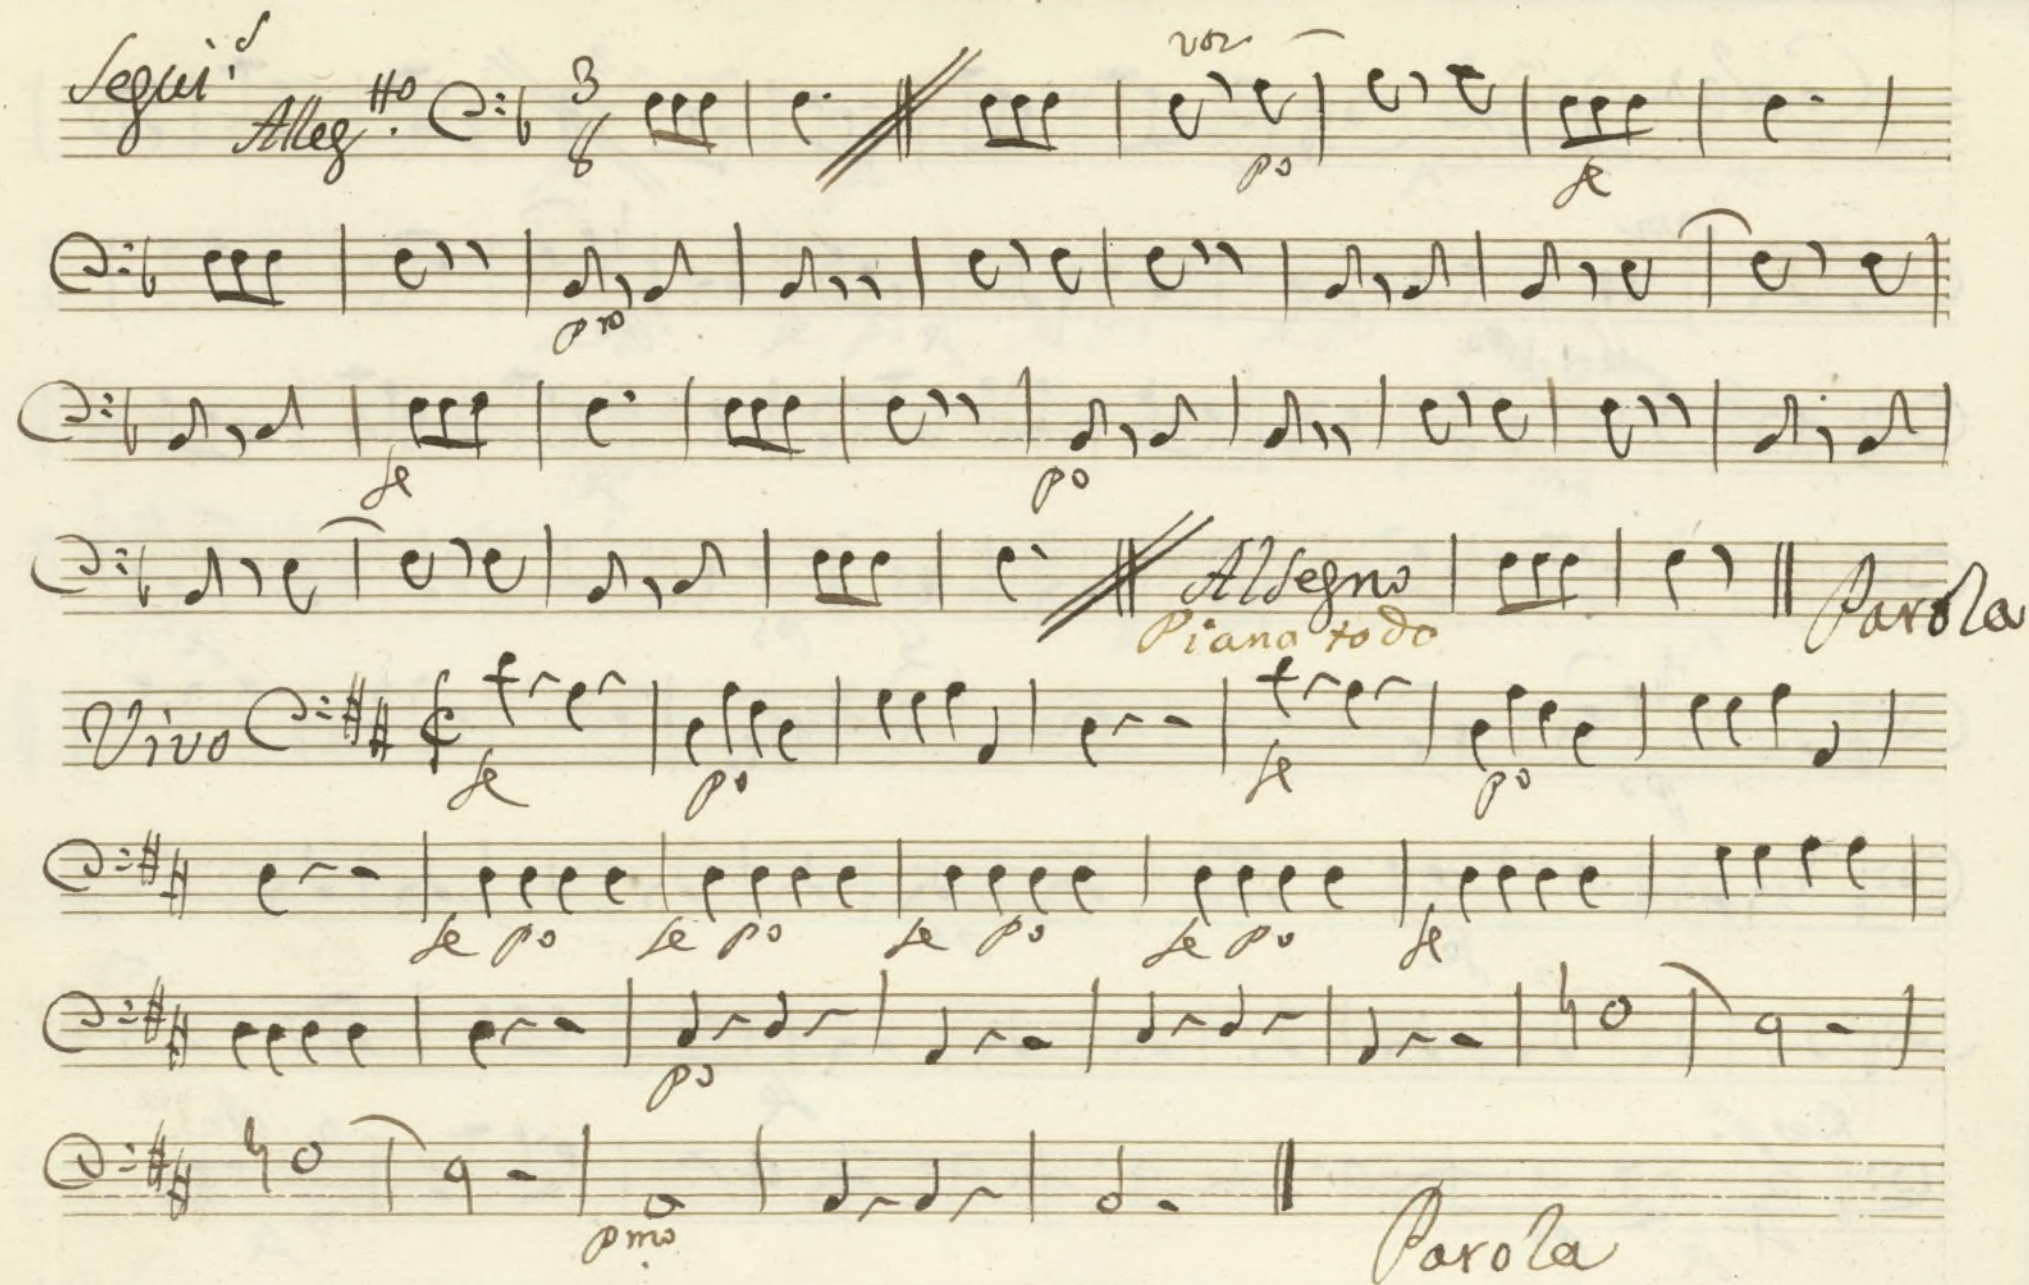 Segui.s Alleg.tto 3/8 voz
po fe
pmo
fe po
Al Segno Parola
Piano todo
Vivo fe po fe po
fe po fe po fe po fe po fe
po
pmo.
Parola